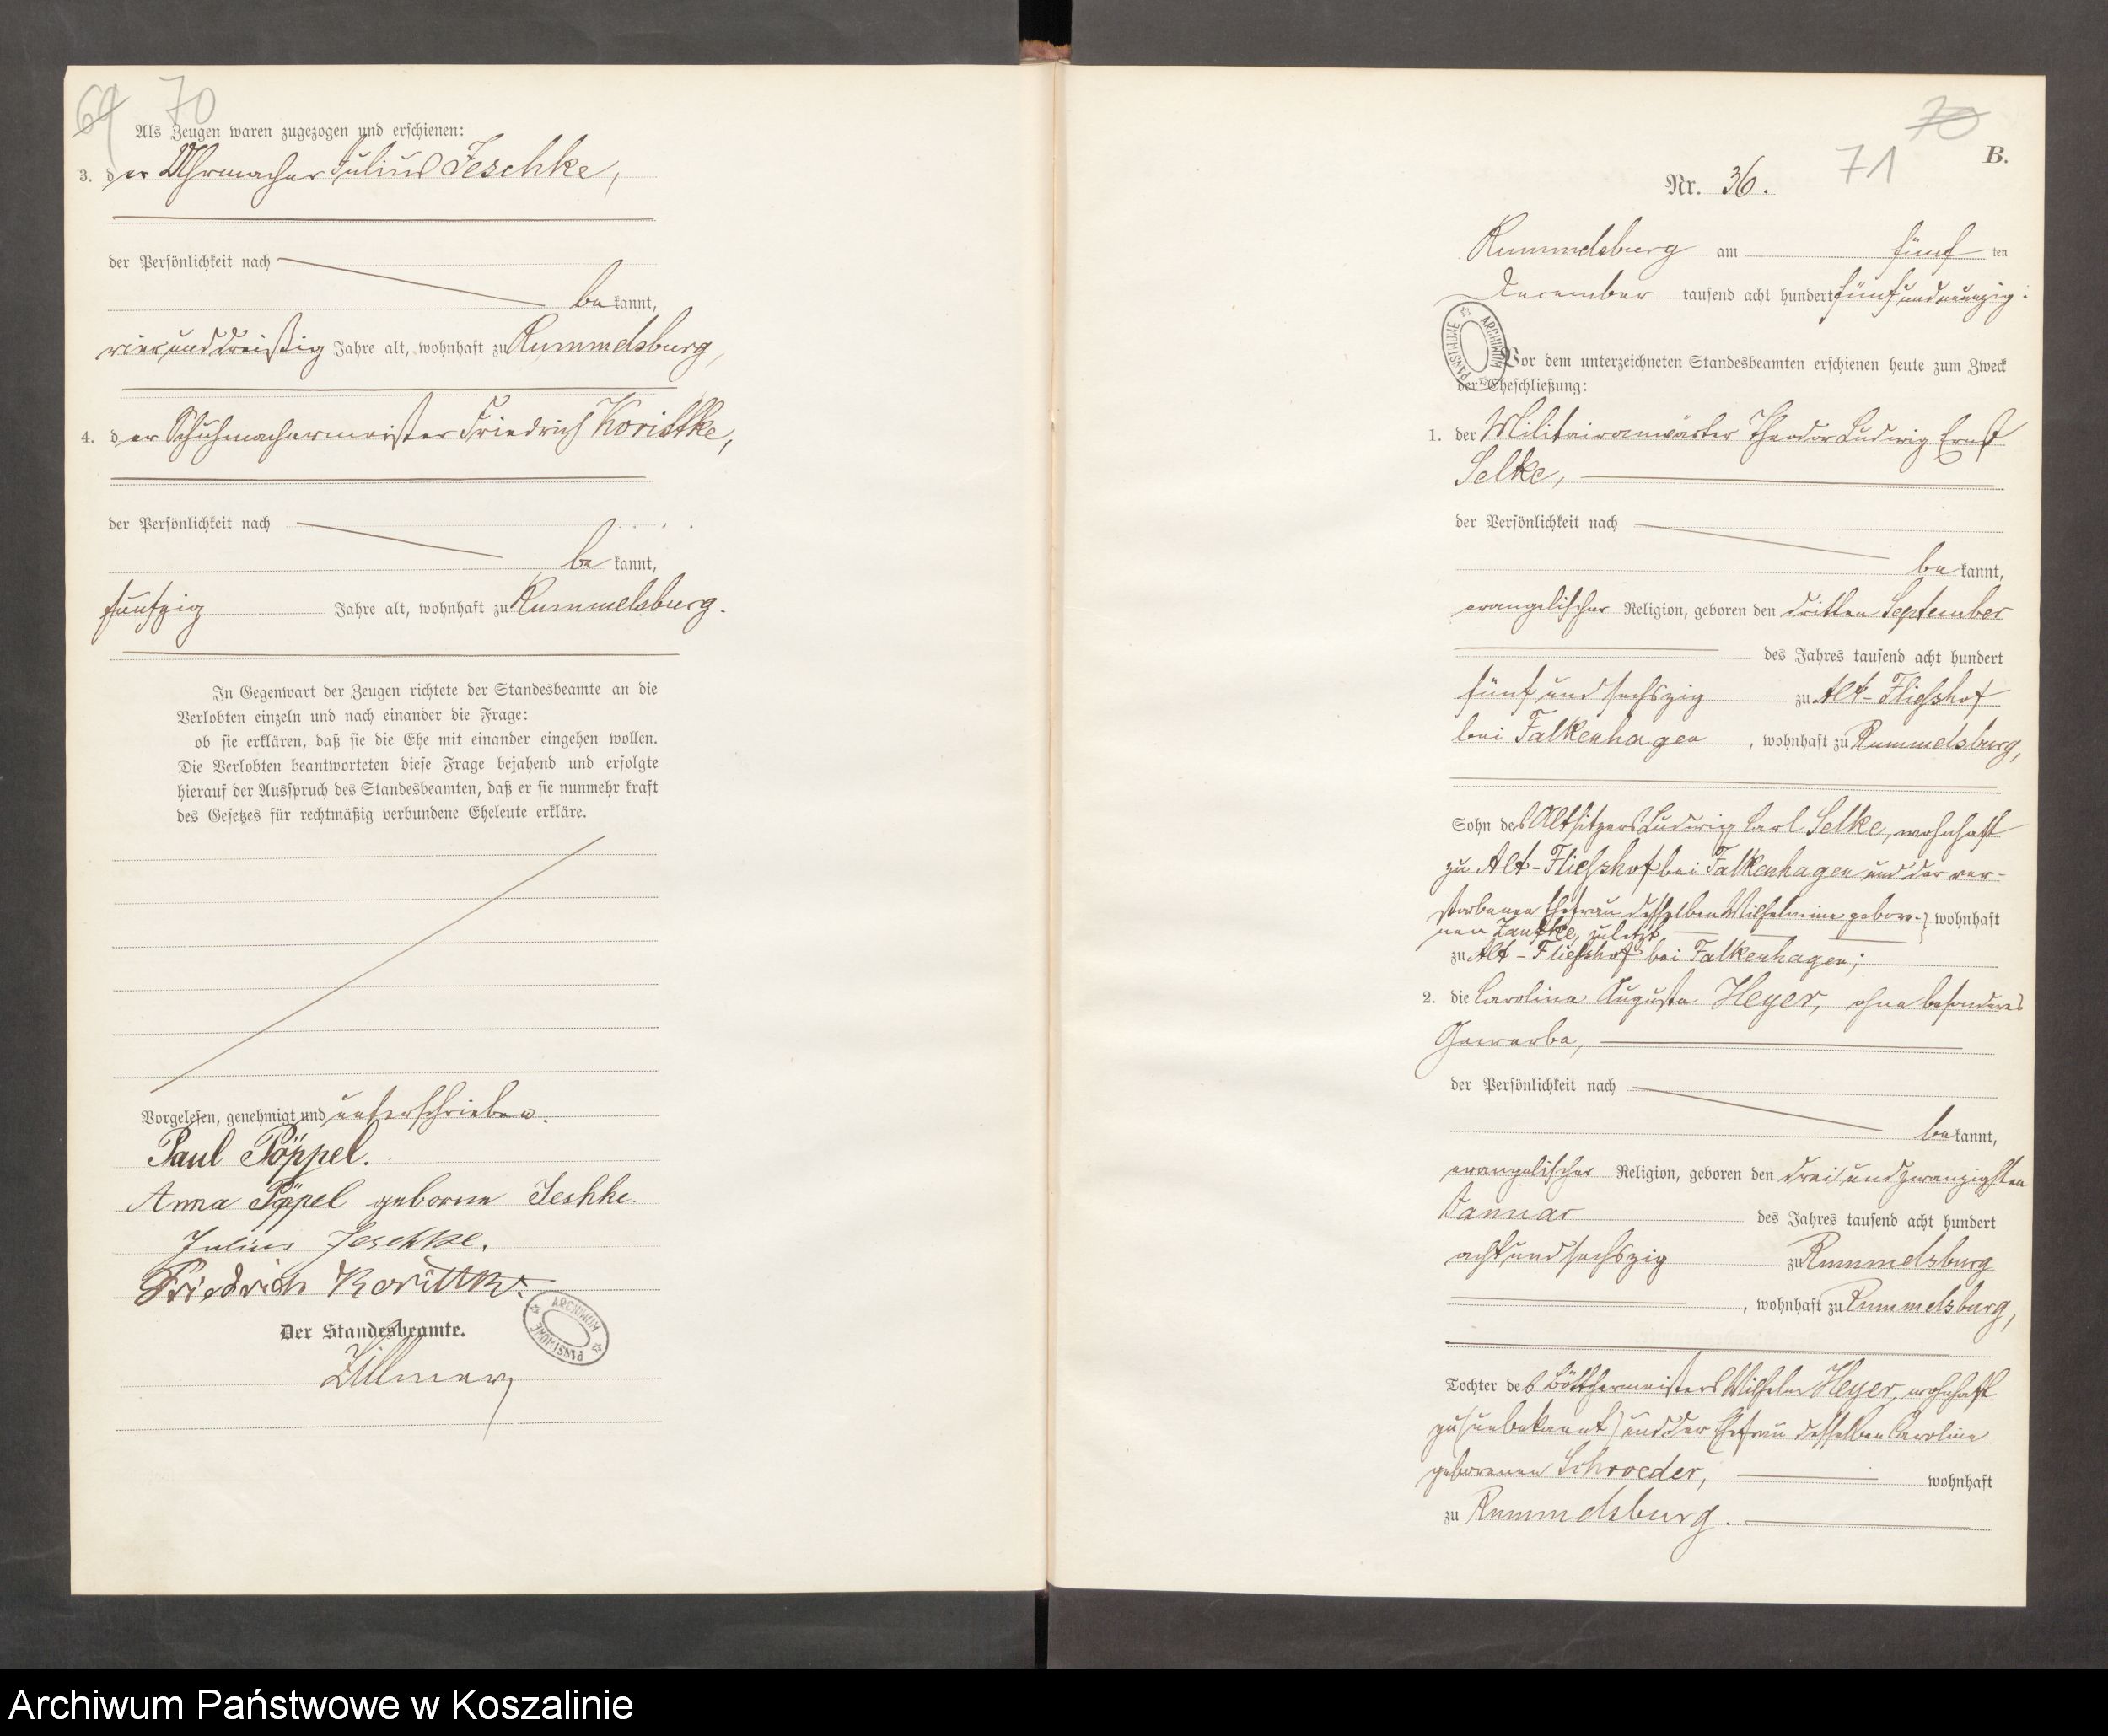 69 70
Als Zeugen waren zugezogen und erschienen:
3. der Uhrmacher Julius Jeschke,
der Persönlichkeit nach
bekannt,
vierunddreißig Jahre alt, wohnhaft zu Rummelsburg,
4. der Schuhmachermeister Friedrich Koristke,
der Persönlichkeit nach
bekannt,
fünfzig Jahre alt, wohnhaft zu Rummelsburg.
In Gegenwart der Zeugen richtete der Standesbeamte an die
Verlobten einzeln und nach einander die Frage:
ob sie erklären, daß sie die Ehe mit einander eingehen wollen.
Die Verlobten beantworteten diese Frage bejahend und erfolgte
hierauf der Ausspruch des Standesbeamten, daß er sie nunmehr kraft
des Gesetzes für rechtmäßig verbundene Eheleute erkläre.
Vorgelesen, genehmigt und unterschrieben.
Paul Pöppel.
Anna Pöppel geborne Jeshke.
Julius Jeschke.
Friedrich Korittke.
Der Standesbeamte.
ARCHIWUM PAŃSTWOWE
70
B.
71
Nr. 36.
Rummelsburg am fünften
December tausend acht hundert fünfundneunzig.
ARCHIWUM PAŃSTWOWE
Vor dem unterzeichneten Standesbeamten erschienen heute zum Zweck
der Eheschließung:
1. der Militairanwärter Theodor Ludwig Ernst
Selke,
der Persönlichkeit nach
bekannt,
evangelischer Religion, geboren den dritten September
des Jahres tausend acht hundert
fünf und sechszig zu Alt-Fließhof
bei Falkenhagen, wohnhaft zu Rummelsburg,
Sohn des Altsitzers Ludwig Carl Selke, wohnhaft
zu Alt-Fließhof bei Falkenhagen und der ver-
storbenen Ehefrau desselben Wilhelmine gebore- wohnhaft
nen zuletzt
zu Alt-Fließhof bei Falkenhagen;
2. die Carolina Augusta Heyer, ohne besonderes
Gewerbe,
der Persönlichkeit nach
bekannt,
evangelischer Religion, geboren den drei und zwanzigsten
Januar des Jahres tausend acht hundert
acht und sechszig zu Rummelsburg
, wohnhaft zu Rummelsburg,
Tochter des Böttchermeisters Wilhelm Heyer, wohnhaft
zu (unbekannt) und der Ehefrau desselben Caroline
geborenen Schroeder, wohnhaft
zu Rummelsburg.
Archiwum Państwowe w Koszalinie